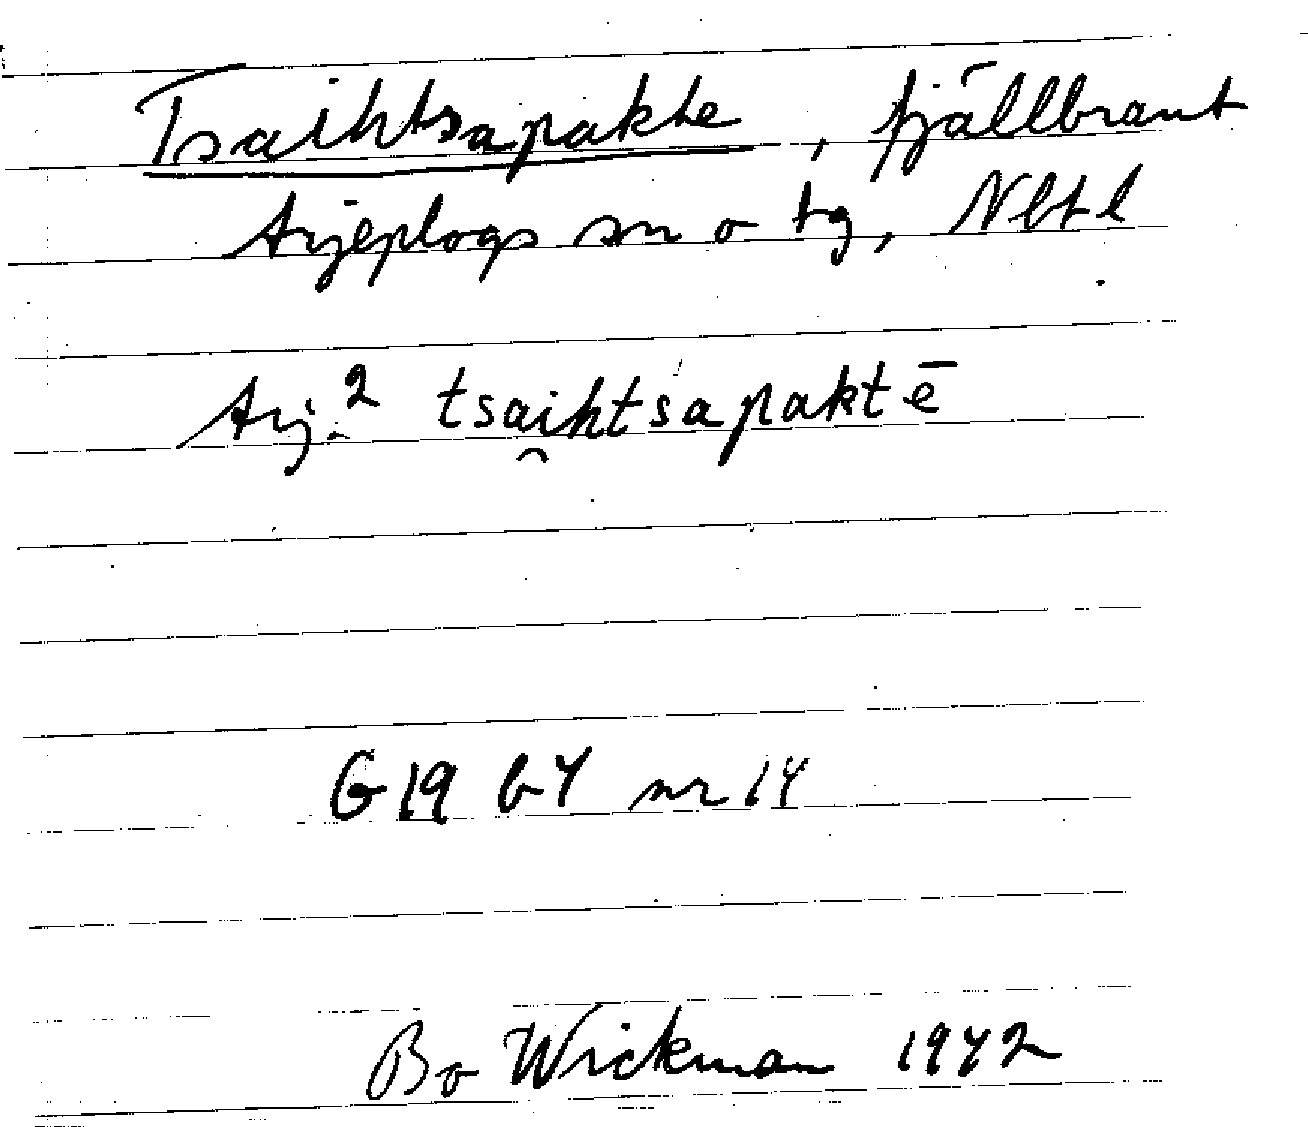 Tsaihtsapakte, fjällbrant
Arjeplogs sn o tg, Nbtl
Arj.2 tsai̯htsapaktē
G19 b4 nr 14
Bo Wickman 1942